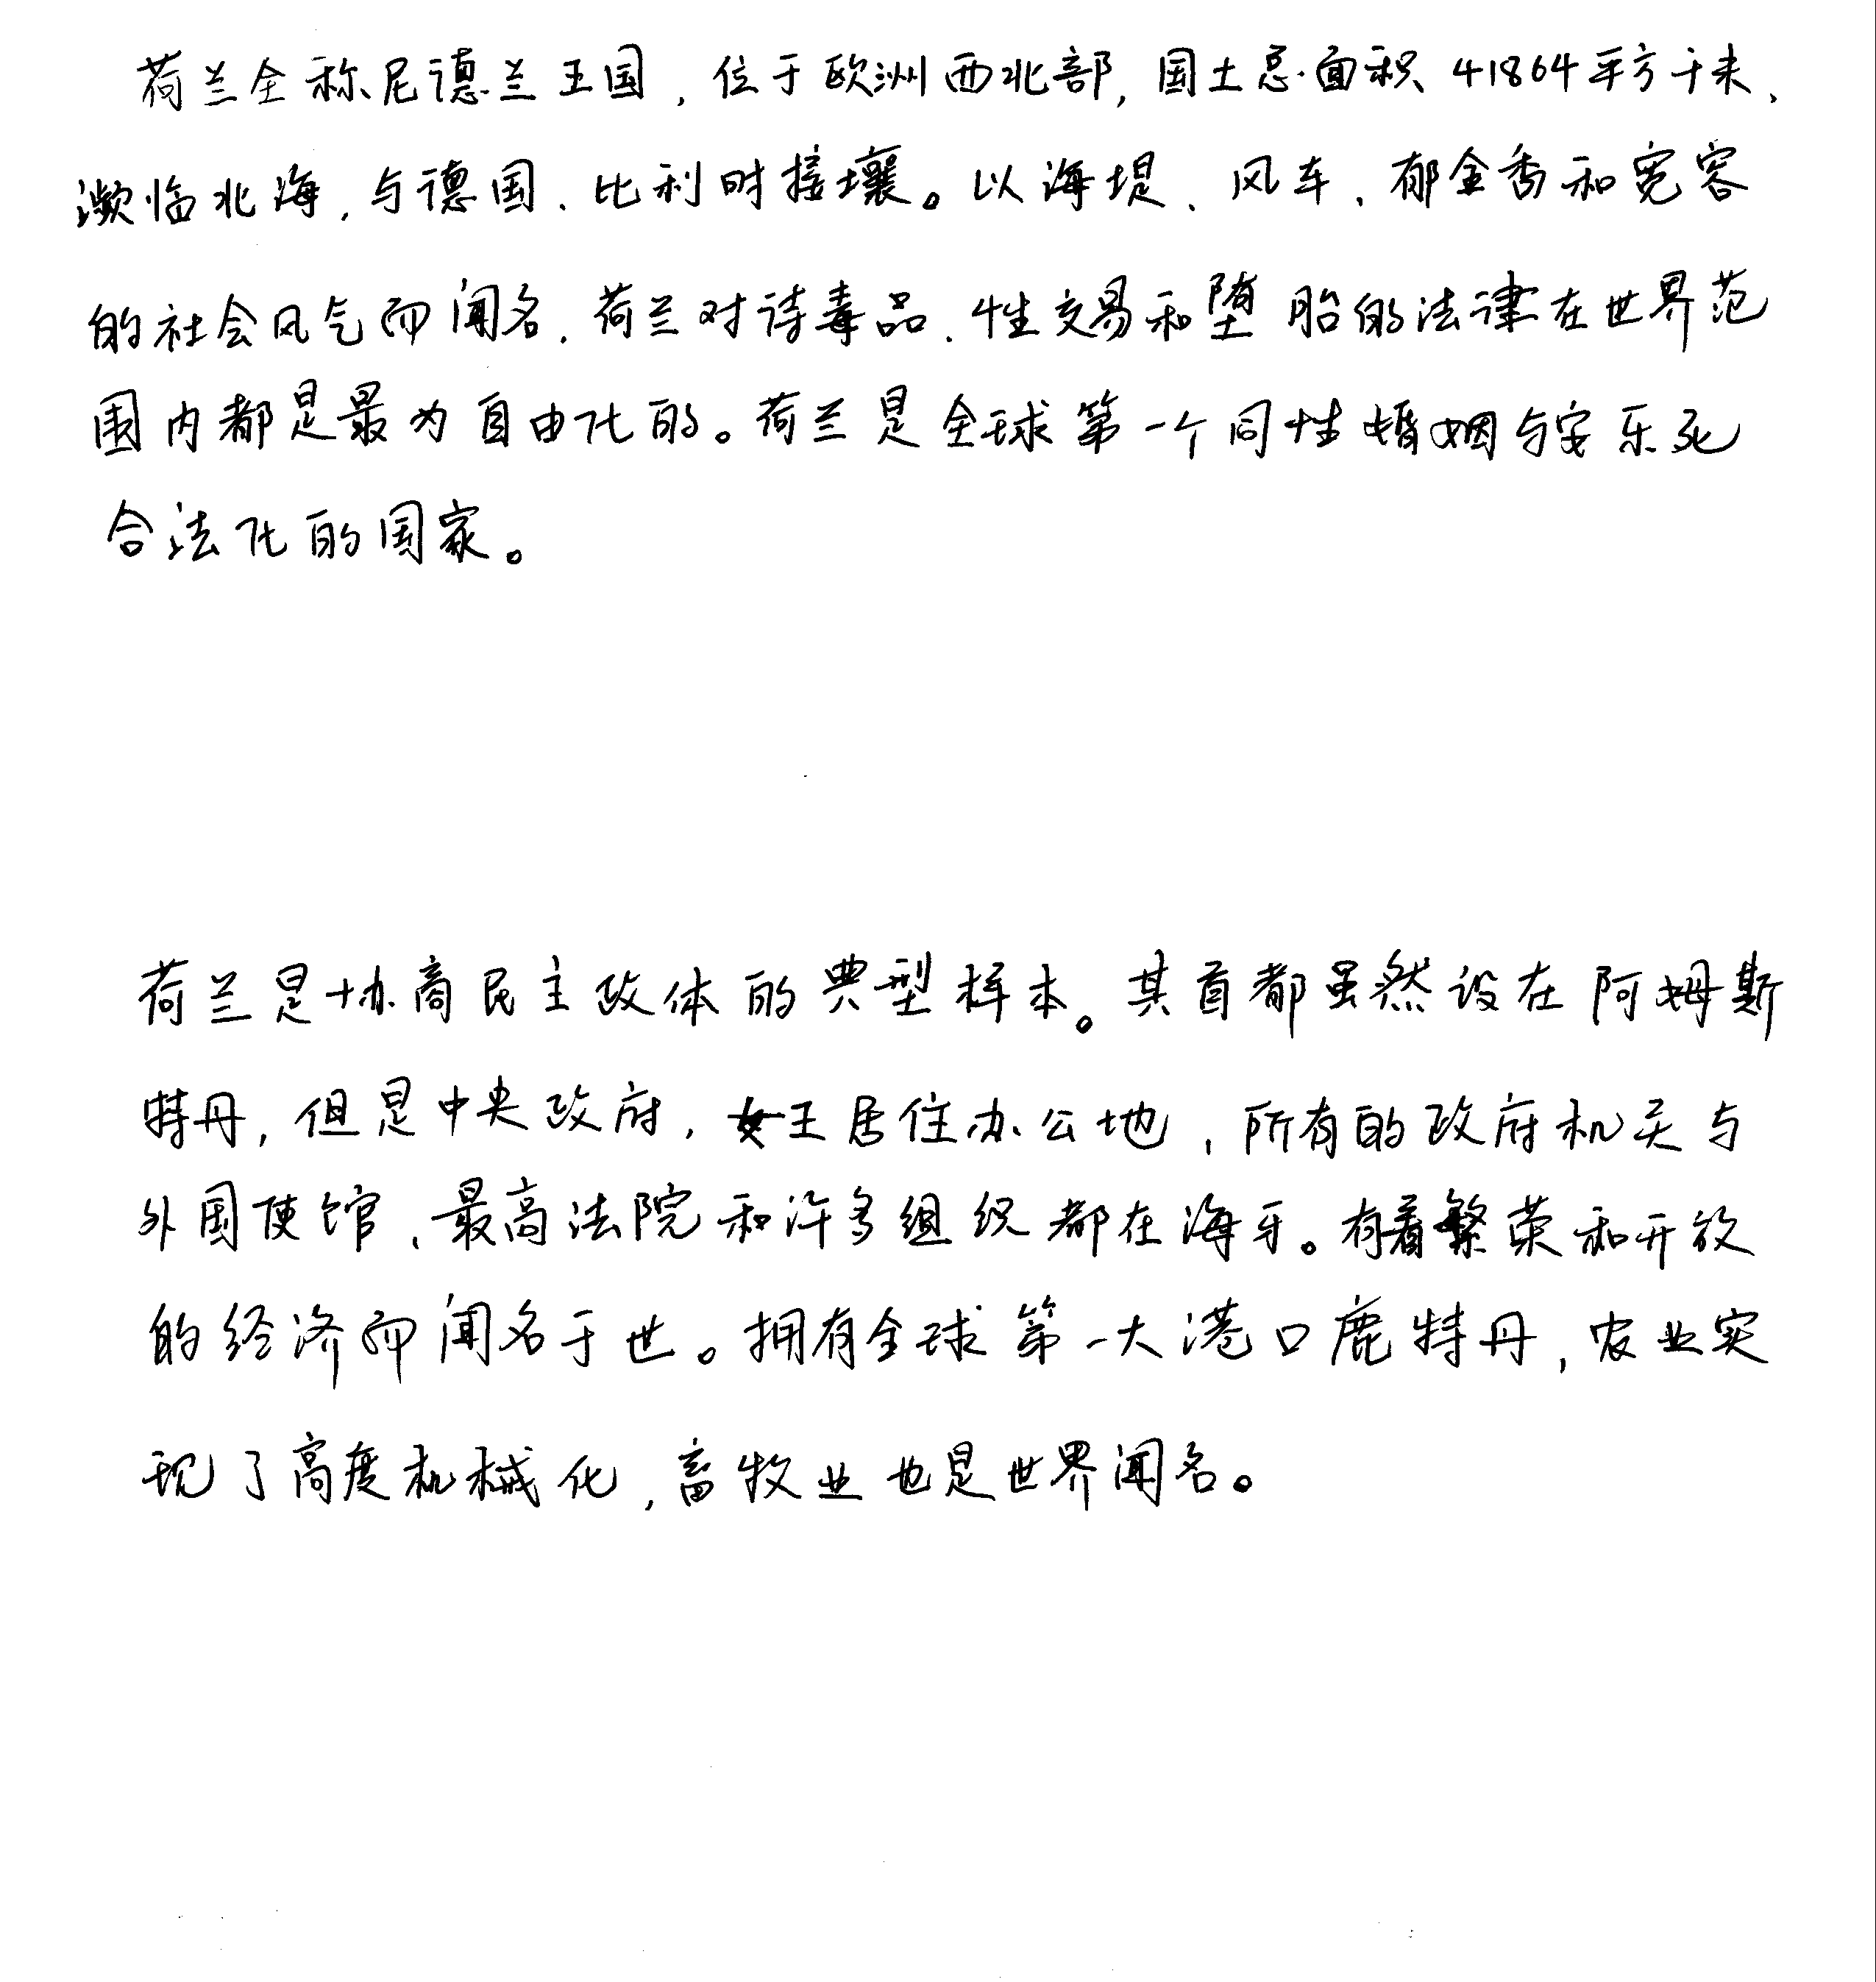 荷兰全称尼德兰王国，位于欧洲西北部，国土总面积41864平方千米、
濒临北海，与德国、比利时接壤。以海堤、风车、郁金香和宽容
的社会风气而闻名，荷兰对待毒品、性交易和堕胎的法律在世界范
围内都是最为自由化的。荷兰是全球第一个同性婚姻与安乐死
合法化的国家。
荷兰是协商民主政体的典型样本。其首都虽然设在阿姆斯
特丹，但是中央政府，女王居住办公地，所有的政府机关与
外国使馆、最高法院和许多组织都在海牙。有着繁荣和开放
的经济而闻名于世。拥有全球第一大港口鹿特丹，农业实
现了高度机械化，畜牧业也是世界闻名。